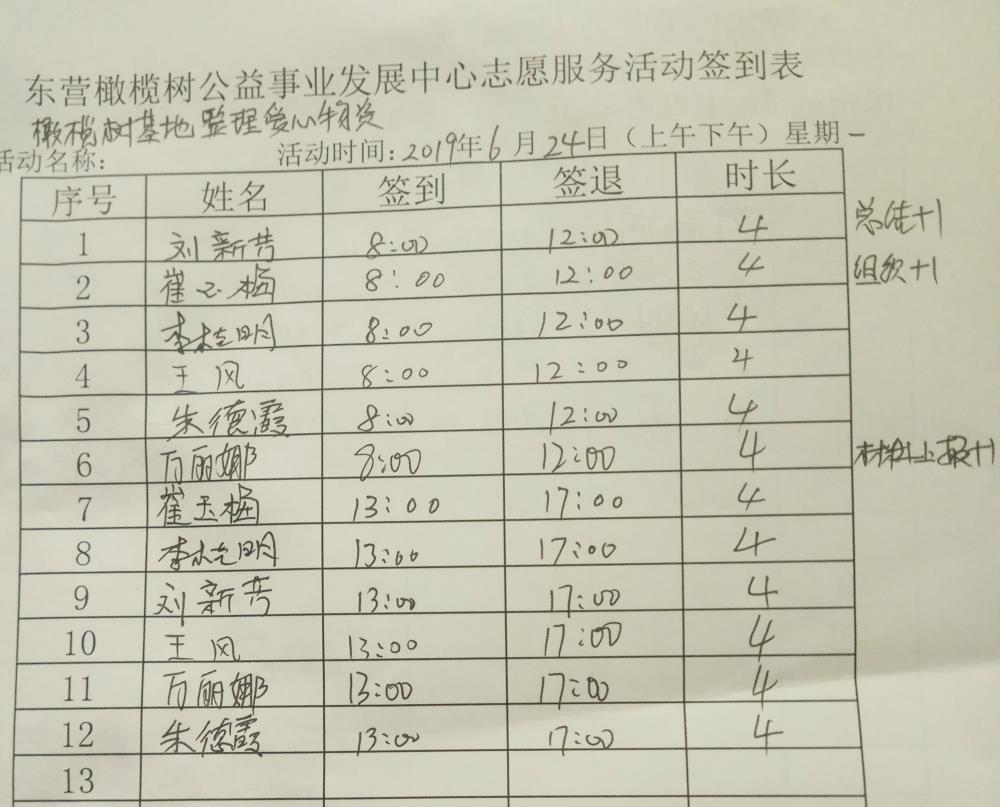 东营橄榄树公益事业发展中心志愿服务活动签到表
橄榄树基地整理爱心物资
活动名称: 活动时间:2019年6月24日(上午下午)星期一
序号 姓名 签到 签退 时长
1 刘新芳 8:00 12:00 4 总结+1
2 崔玉梅 8:00 12:00 4 组织+1
3 李桂明 8:00 12:00 4
4 王风 8:00 12:00 4
5 朱德霞 8:00 12:00 4
6 万丽娜 8:00 12:00 4 材料上报+1
7 崔玉梅 13:00 17:00 4
8 李桂明 13:00 17:00 4
9 刘新芳 13:00 17:00 4
10 王风 13:00 17:00 4
11 万丽娜 13:00 17:00 4
12 朱德霞 13:00 17:00 4
13